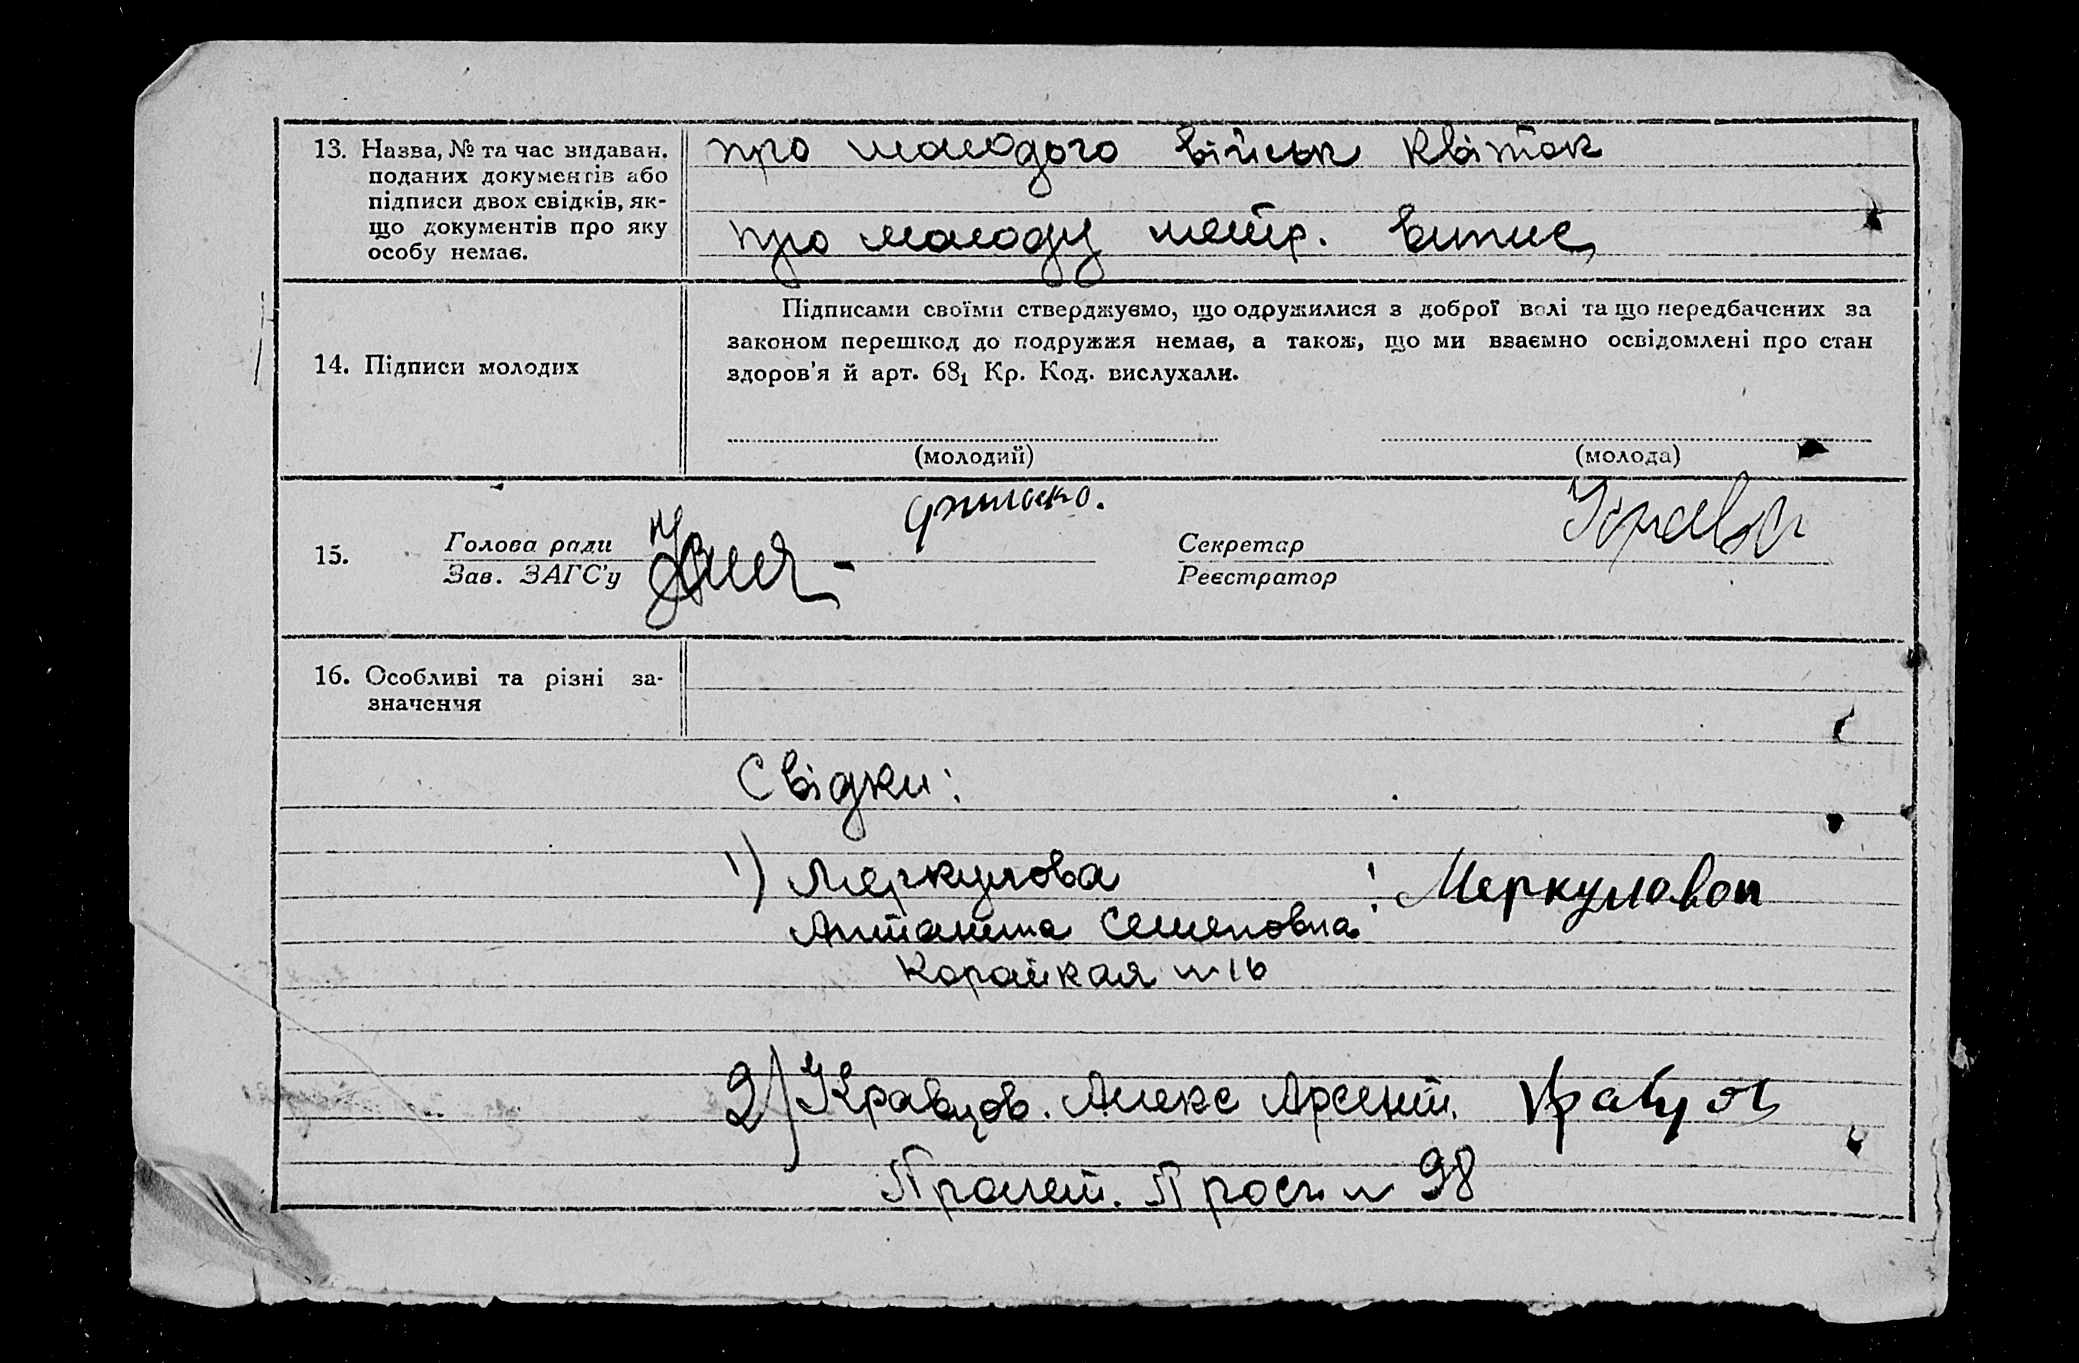 13. Назва, № та час видаван.
поданих документів або
підписи двох свідків, як-
що документів про яку
особу немає.
про молодого військ квіток
про молоду метр. випис
14. Підписи молодих
Підписами своїми стверджуємо, що одружилися з доброї волі та що передбачених за
законом перешкод до подружжя немає, а також, що ми взаємно освідомлені про стан
здоров'я й арт. 68₁ Кр. Код. вислухали.
(молодий)
(молода)
15.
Голова ради
Зав. ЗАГС'у
Секретар
Реєстратор
16. Особливі та різні за-
значення
Свідки:
1) Меркулова
Меркуловой
Антанина Семеновна
№ 16
2) Кравцов. Алекс Арсент. Кравцов
Пролет. Просп № 98